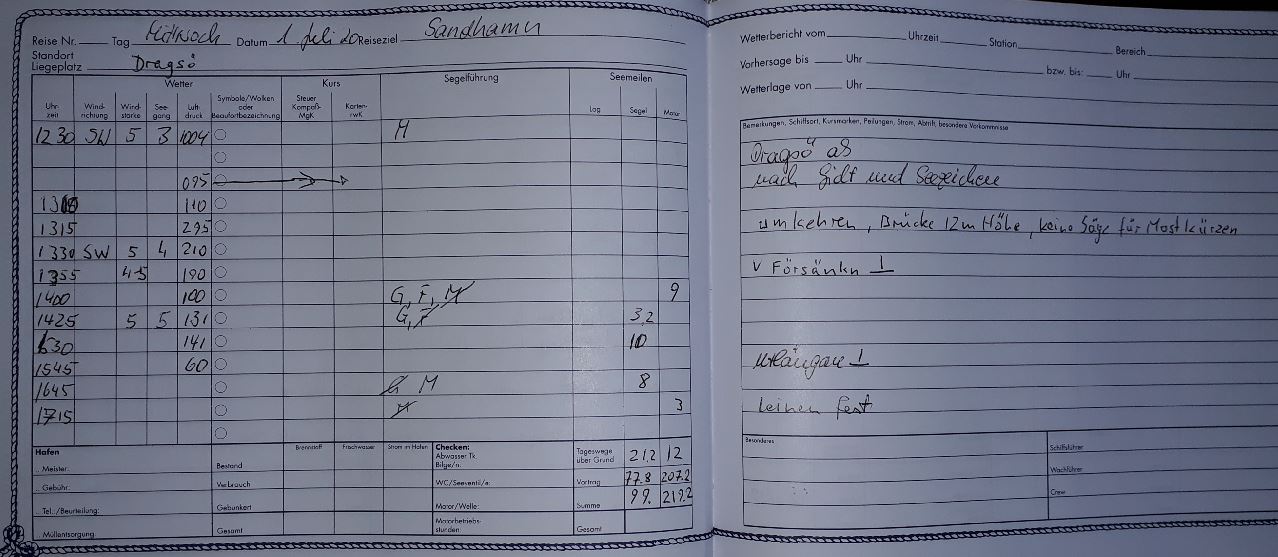 Reise Nr. Tag Mittwoch Datum 1 Juli 20 Reiseziel Sandhamn
Standort
Liegeplatz Dragsö
Wetter Kurs Segelführung Seemeilen
Uhrzeit Windrichtung Windstärke Seegang Luftdruck Symbole/Wolken oder Beaufortbezeichnung Steuer Kompaß- MgK Karten- rwK Log Segel Motor
1230 SW 5 3 1004 M
095
110
1315 295
1330 SW 5 4 210
1355 4-5 190
1400 100 G, F, M 9
1425 5 5 131 G, F 3,2
1530 141 10
1545 60
1645 G M 8
1715 M 3
Hafen Brennstoff Frischwasser Strom im Hafen Checken: Abwasser Tk. Bilge/n. Tageswege über Grund 21,2 12
Meister: Bestand
Gebühr: Verbrauch WC/Seeventil/e: Vortrag 77.8 207.2
Tel./Beurteilung: Gebunkert Motor/Welle: Summe 99. 219.2
Müllentsorgung Gesamt Motorbetriebsstunden: Gesamt
Wetterbericht vom Uhrzeit Station Bereich
Vorhersage bis Uhr bzw. bis: Uhr
Wetterlage von Uhr
Bemerkungen, Schiffsort, Kursmarken, Peilungen, Strom, Abtrift, besondere Vorkommnisse
Dragsö ab
nach Sicht und Seezeichen
umkehren, Brücke 12m Höhe, keine Säge für Mast kürzen
v Försänkn ⊥
Utlängan ⊥
Leinen fest
Besonderes
Schiffsführer
Wachführer
Crew